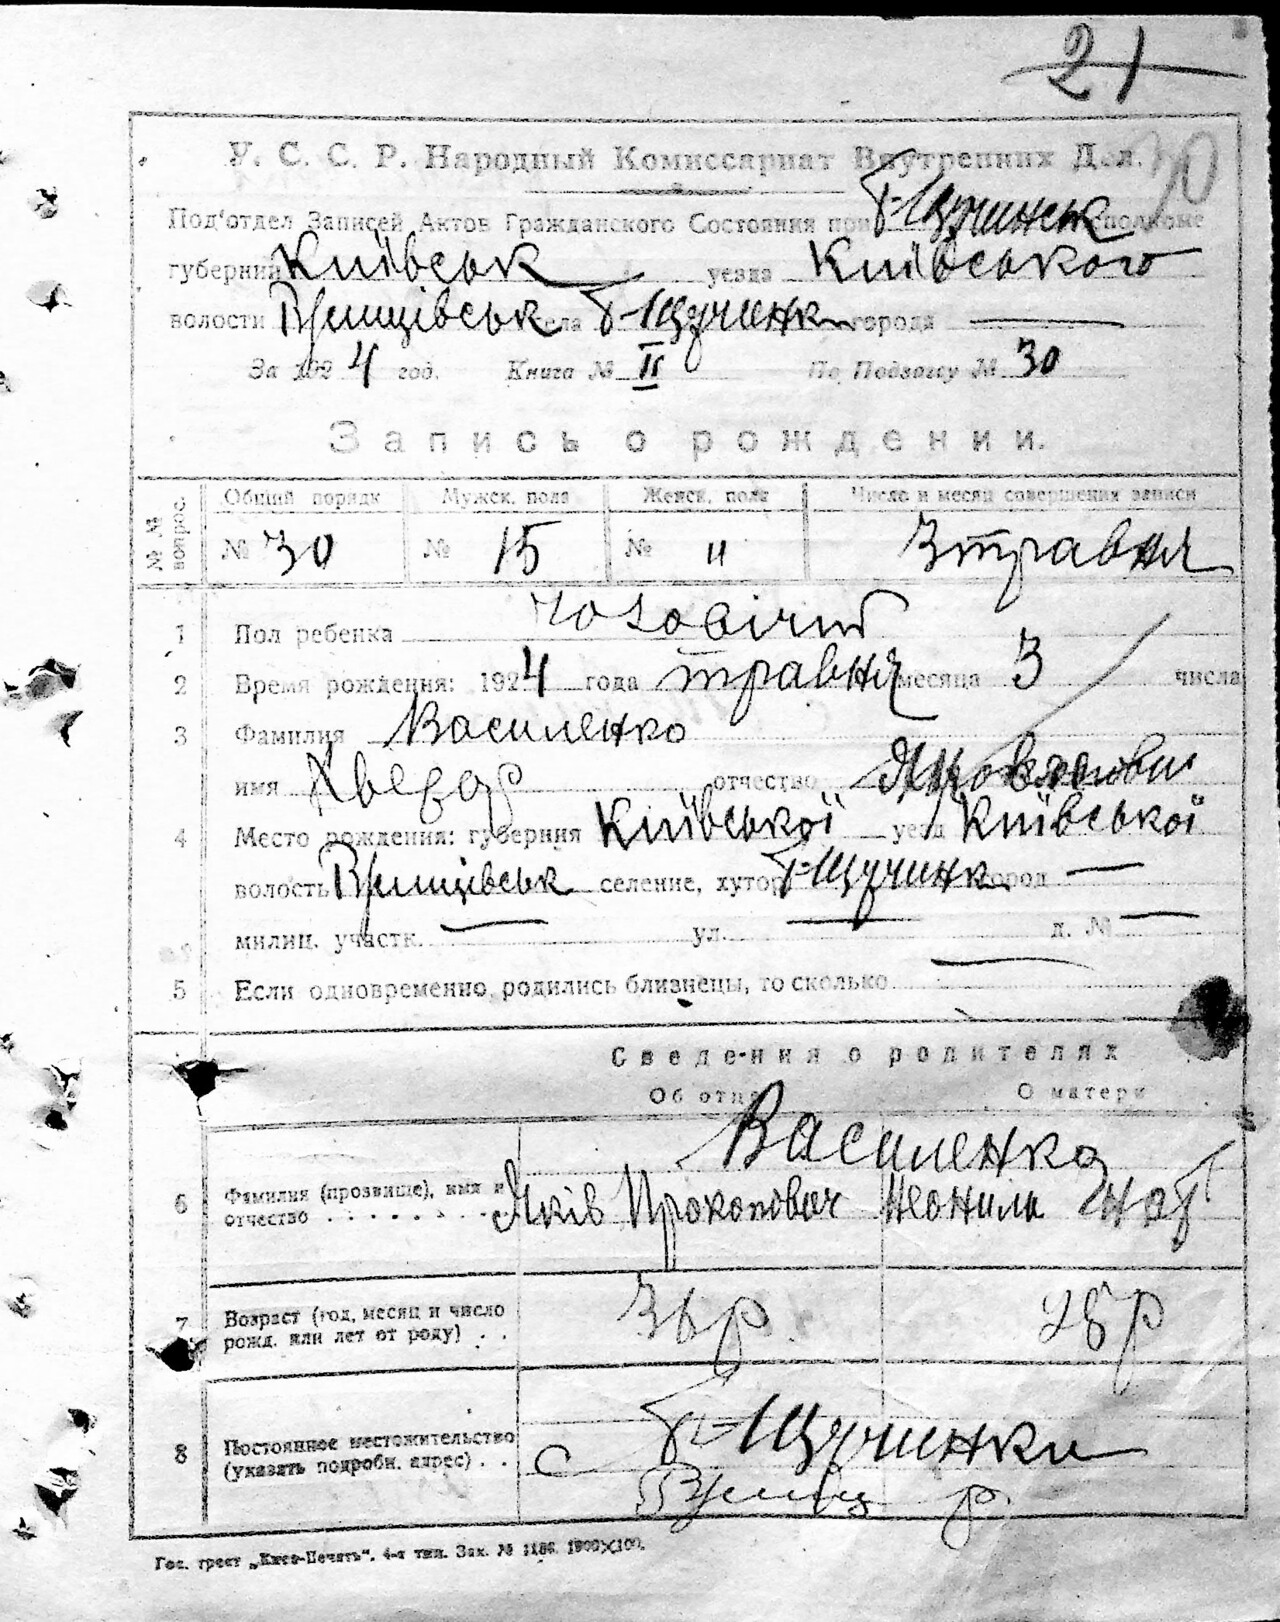 21
30
У. С. С. Р. Народный Комиссариат Внутренних Дел.
Под'отдел Записей Актов Гражданского Состояния при Т-Щучинськ полкоме
губернии Київськ уезда Київського
волости Ржищівськ села Т-Щучинки города —
За 1924 год. Книга № II По Подзагсу № 30
Запись о рождении.
№№ вопрос. Общий порядк Мужск. пола Женск. пола Число и месяц совершения записи
№ 30 № 15 № " 3 травня
1 Пол ребенка чоловічий
2 Время рождения: 1924 года травня месяца 3 числа
3 Фамилия Василенко
имя отчество Яковлевич
4 Место рождения: губерния Київської уезд Київської
волость Ржищівськ селение, хутор Т-Щучинк город —
милиц. участк. — ул. — д. № —
5 Если одновременно родились близнецы, то сколько —
Сведения о родителях
Об отце О матери
Василенко
6 Фамилия (прозвище), имя и отчество . . . . Яків Прокопович Неонила Гнат
7 Возраст (год, месяц и число рожд. или лет от роду) . . р. 28 р
8 Постоянное местожительство (указать подробн. адрес) . . с Т-Щучинки
Ржищ р.
Гос. трест „Киев-Печать". 4-я тип. Зак. № 1186. 1000×100.